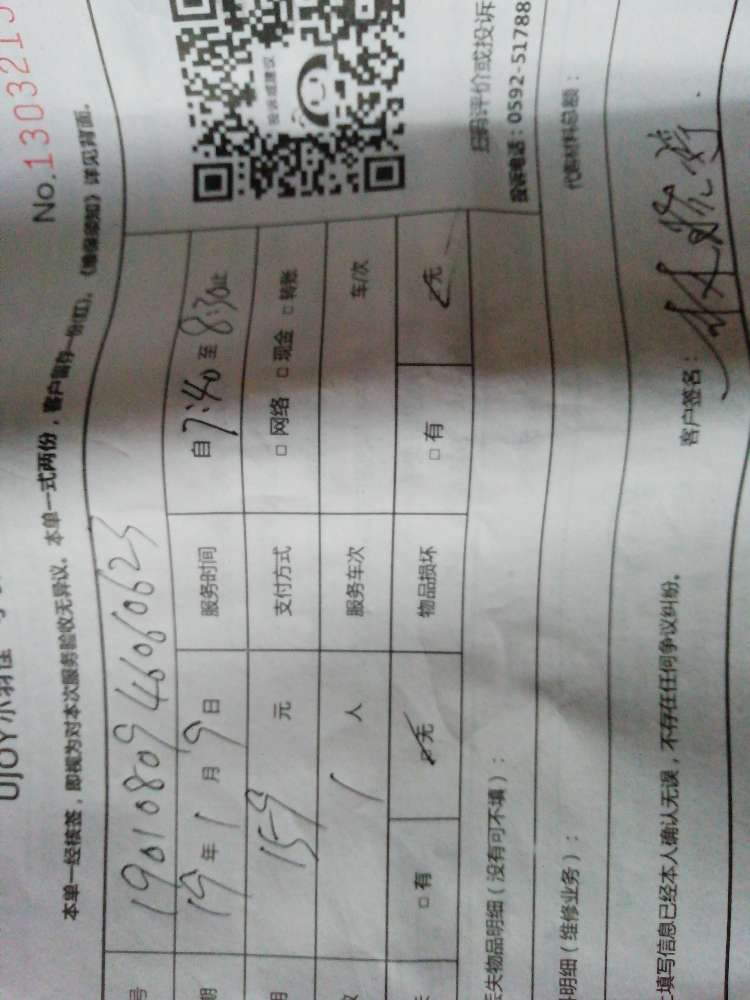 No.1303215
UJOY小羽佳
本单一经核签，即视为对本次服务验收无异议。本单一式两份，客户留存一份(红)。《维保须知》详见背面。
号 1901080946060623
期 19年1月9日 服务时间 自7:40至8:30止
用 159元 支付方式 □ 网络 □ 现金 □ 转账
1人 服务车次 车/次
失 □ 有 ✓无 物品损坏 □ 有 ✓无
投诉或建议
扫码评价或投诉
投诉电话：0592-51788
丢失物品明细（没有可不填）：
明细（维修业务）：
代购材料总额：
填写信息已经本人确认无误，不存在任何争议纠纷。
客户签名：